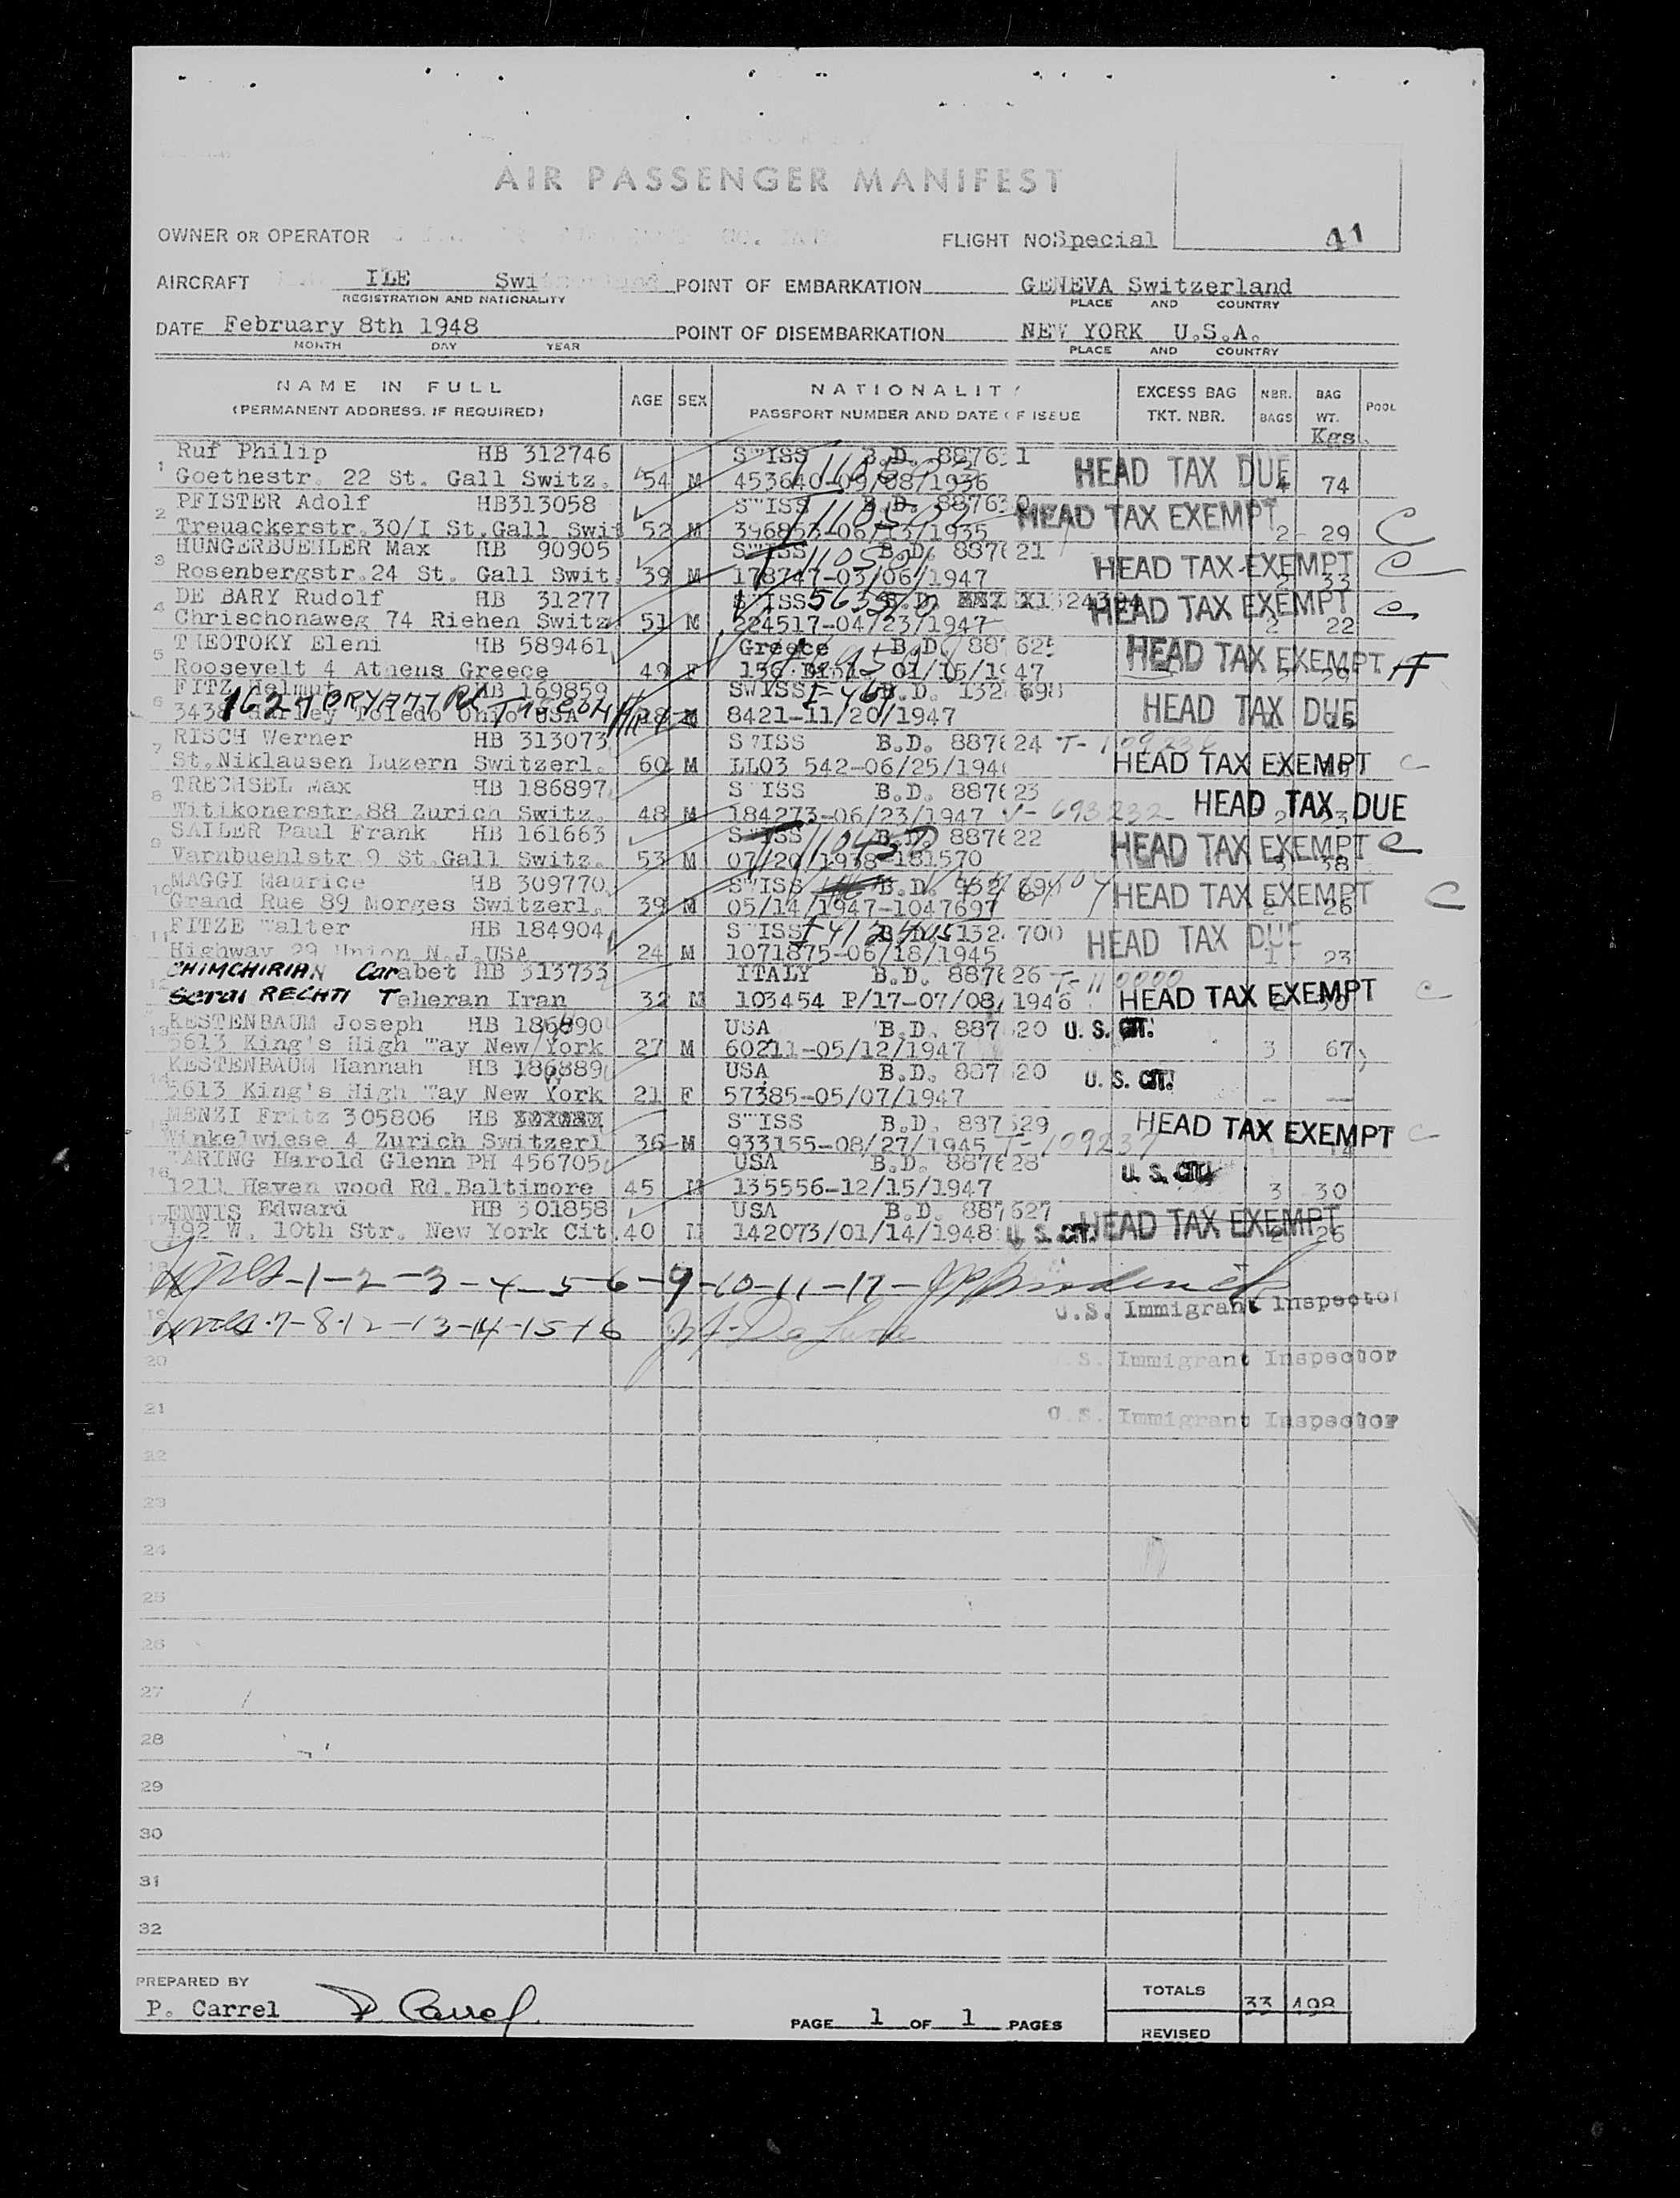 AIR PASSENGER MANIFEST
OWNER OR OPERATOR
FLIGHT NO. Special
41
AIRCRAFT ILE Switzerland
REGISTRATION AND NATIONALITY
POINT OF EMBARKATION GENEVA Switzerland
PLACE AND COUNTRY
DATE February 8th 1948
MONTH DAY YEAR
POINT OF DISEMBARKATION NEW YORK U.S.A.
PLACE AND COUNTRY
NAME IN FULL AGE SEX NATIONALITY EXCESS BAG NBR. BAG POOL
(PERMANENT ADDRESS, IF REQUIRED) PASSPORT NUMBER AND DATE OF ISSUE TKT. NBR. BAGS WT.
Kgs.
1 Ruf Philip HB 312746 SWISS B.D. 887631 HEAD TAX DUE
Goethestr. 22 St. Gall Switz. 54 M 453640-09/08/1936 74
2 PFISTER Adolf HB313058 SWISS B.D. 887630 HEAD TAX EXEMPT C
Treuackerstr.30/I St.Gall Swit 52 M 396853-06/13/1935 2 29
3 HUNGERBUEHLER Max HB 90905 SWISS B.D. 887621 HEAD TAX EXEMPT C
Rosenbergstr.24 St. Gall Swit. 39 M 178747-03/06/1947 33
4 DE BARY Rudolf HB 31277 SWISS B.D. HEAD TAX EXEMPT C
Chrischonaweg 74 Riehen Switz 51 M 224517-04/23/1947 2 22
5 THEOTOKY Eleni HB 589461 Greece B.D. 887625 HEAD TAX EXEMPT
Roosevelt 4 Athens Greece 49 F 01/15/1947
6 FITZ Helmut HB 169859 SWISS B.D. 132698 HEAD TAX DUE
3438 Toledo Ohio USA 18 M 8421-11/20/1947
7 RISCH Werner HB 313073 SWISS B.D. 887624 T-109236 HEAD TAX EXEMPT C
St.Niklausen Luzern Switzerl. 60 M LL03 542-06/25/194
8 TRECHSEL Max HB 186897 SWISS B.D. 887623 HEAD TAX DUE
Witikonerstr.88 Zurich Switz. 48 M 184273-06/23/1947 V-693232
9 SAILER Paul Frank HB 161663 SWISS B.D. 887622 HEAD TAX EXEMPT C
Varnbuehlstr 9 St.Gall Switz. 53 M 07/20/1938-181570 38
10 MAGGI Maurice HB 309770 SWISS B.D. HEAD TAX EXEMPT C
Grand Rue 89 Morges Switzerl. 39 M 05/14/1947-1047697 2 26
11 FITZE Walter HB 184904 SWISS B.D. 132700 HEAD TAX DUE
Highway 29 Union N.J.USA 24 M 1071875-06/18/1945 1 23
12 CHIMCHIRIAN Carabet HB 313733 ITALY B.D. 887626 T-110000 HEAD TAX EXEMPT C
Serai RECHTI Taheran Iran 32 M 103454 P/17-07/08/1946 30
13 KESTENBAUM Joseph HB 186890 USA B.D. 887620 U. S. CIT.
5613 King's High Way New York 27 M 60211-05/12/1947 3 67
14 KESTENBAUM Hannah HB 186889 USA B.D. 887620 U. S. CIT.
5613 King's High Way New York 21 F 57385-05/07/1947 - -
15 MENZI Fritz 305806 HB SWISS B.D. 887629 HEAD TAX EXEMPT C
Winkelwiese 4 Zurich Switzerl 36 M 933155-08/27/1945 T-109237 14
16 WARING Harold Glenn PH 456705 USA B.D. 887628 U. S. CIT.
1211 Haven wood Rd.Baltimore 45 M 135556-12/15/1947 3 30
17 ENNIS Edward HB 301858 USA B.D. 887627 U. S. CIT. HEAD TAX EXEMPT
192 W. 10th Str. New York Cit. 40 M 142073/01/14/1948 26
18 Lines-1-2-3-4-5-6-9-10-11-17-
U.S. Immigrant Inspector
19 Lines-7-8-12-13-14-15-16
20 U.S. Immigrant Inspector
21 U.S. Immigrant Inspector
22
23
24
25
26
27
28
29
30
31
32
PREPARED BY
P. Carrel P Carrel
PAGE 1 OF 1 PAGES
TOTALS 33 498
REVISED